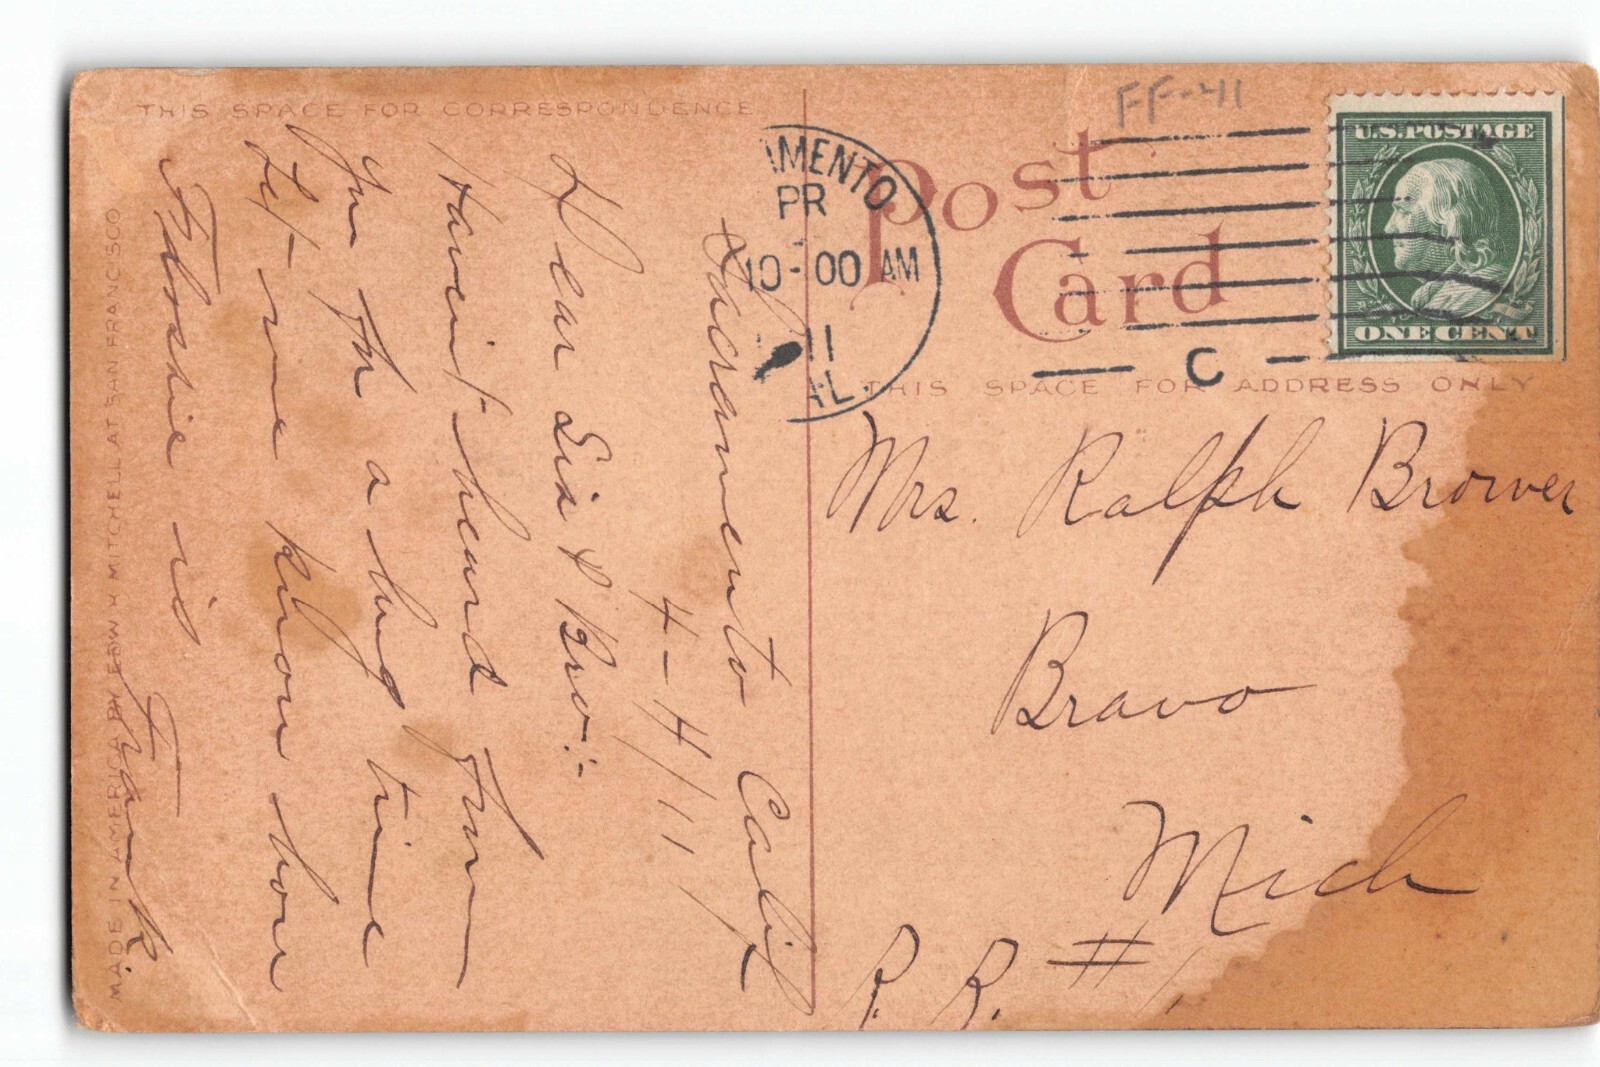 THIS SPACE FOR CORRESPONDENCE
Sacramento Calif
4-4/11
Dear Sis & Bro:-
Havent heard from
you for a long time
Let me know how
Flossie is
Frank.
MADE IN AMERICA BY EDW H MITCHELL AT SAN FRANCISCO
FF-41
Post
Card
AMENTO
PR
10-00 AM
11
AL.
C
U.S. POSTAGE
ONE CENT
THIS SPACE FOR ADDRESS ONLY
Mrs. Ralph Brower
Bravo
Mich
R. R. #1